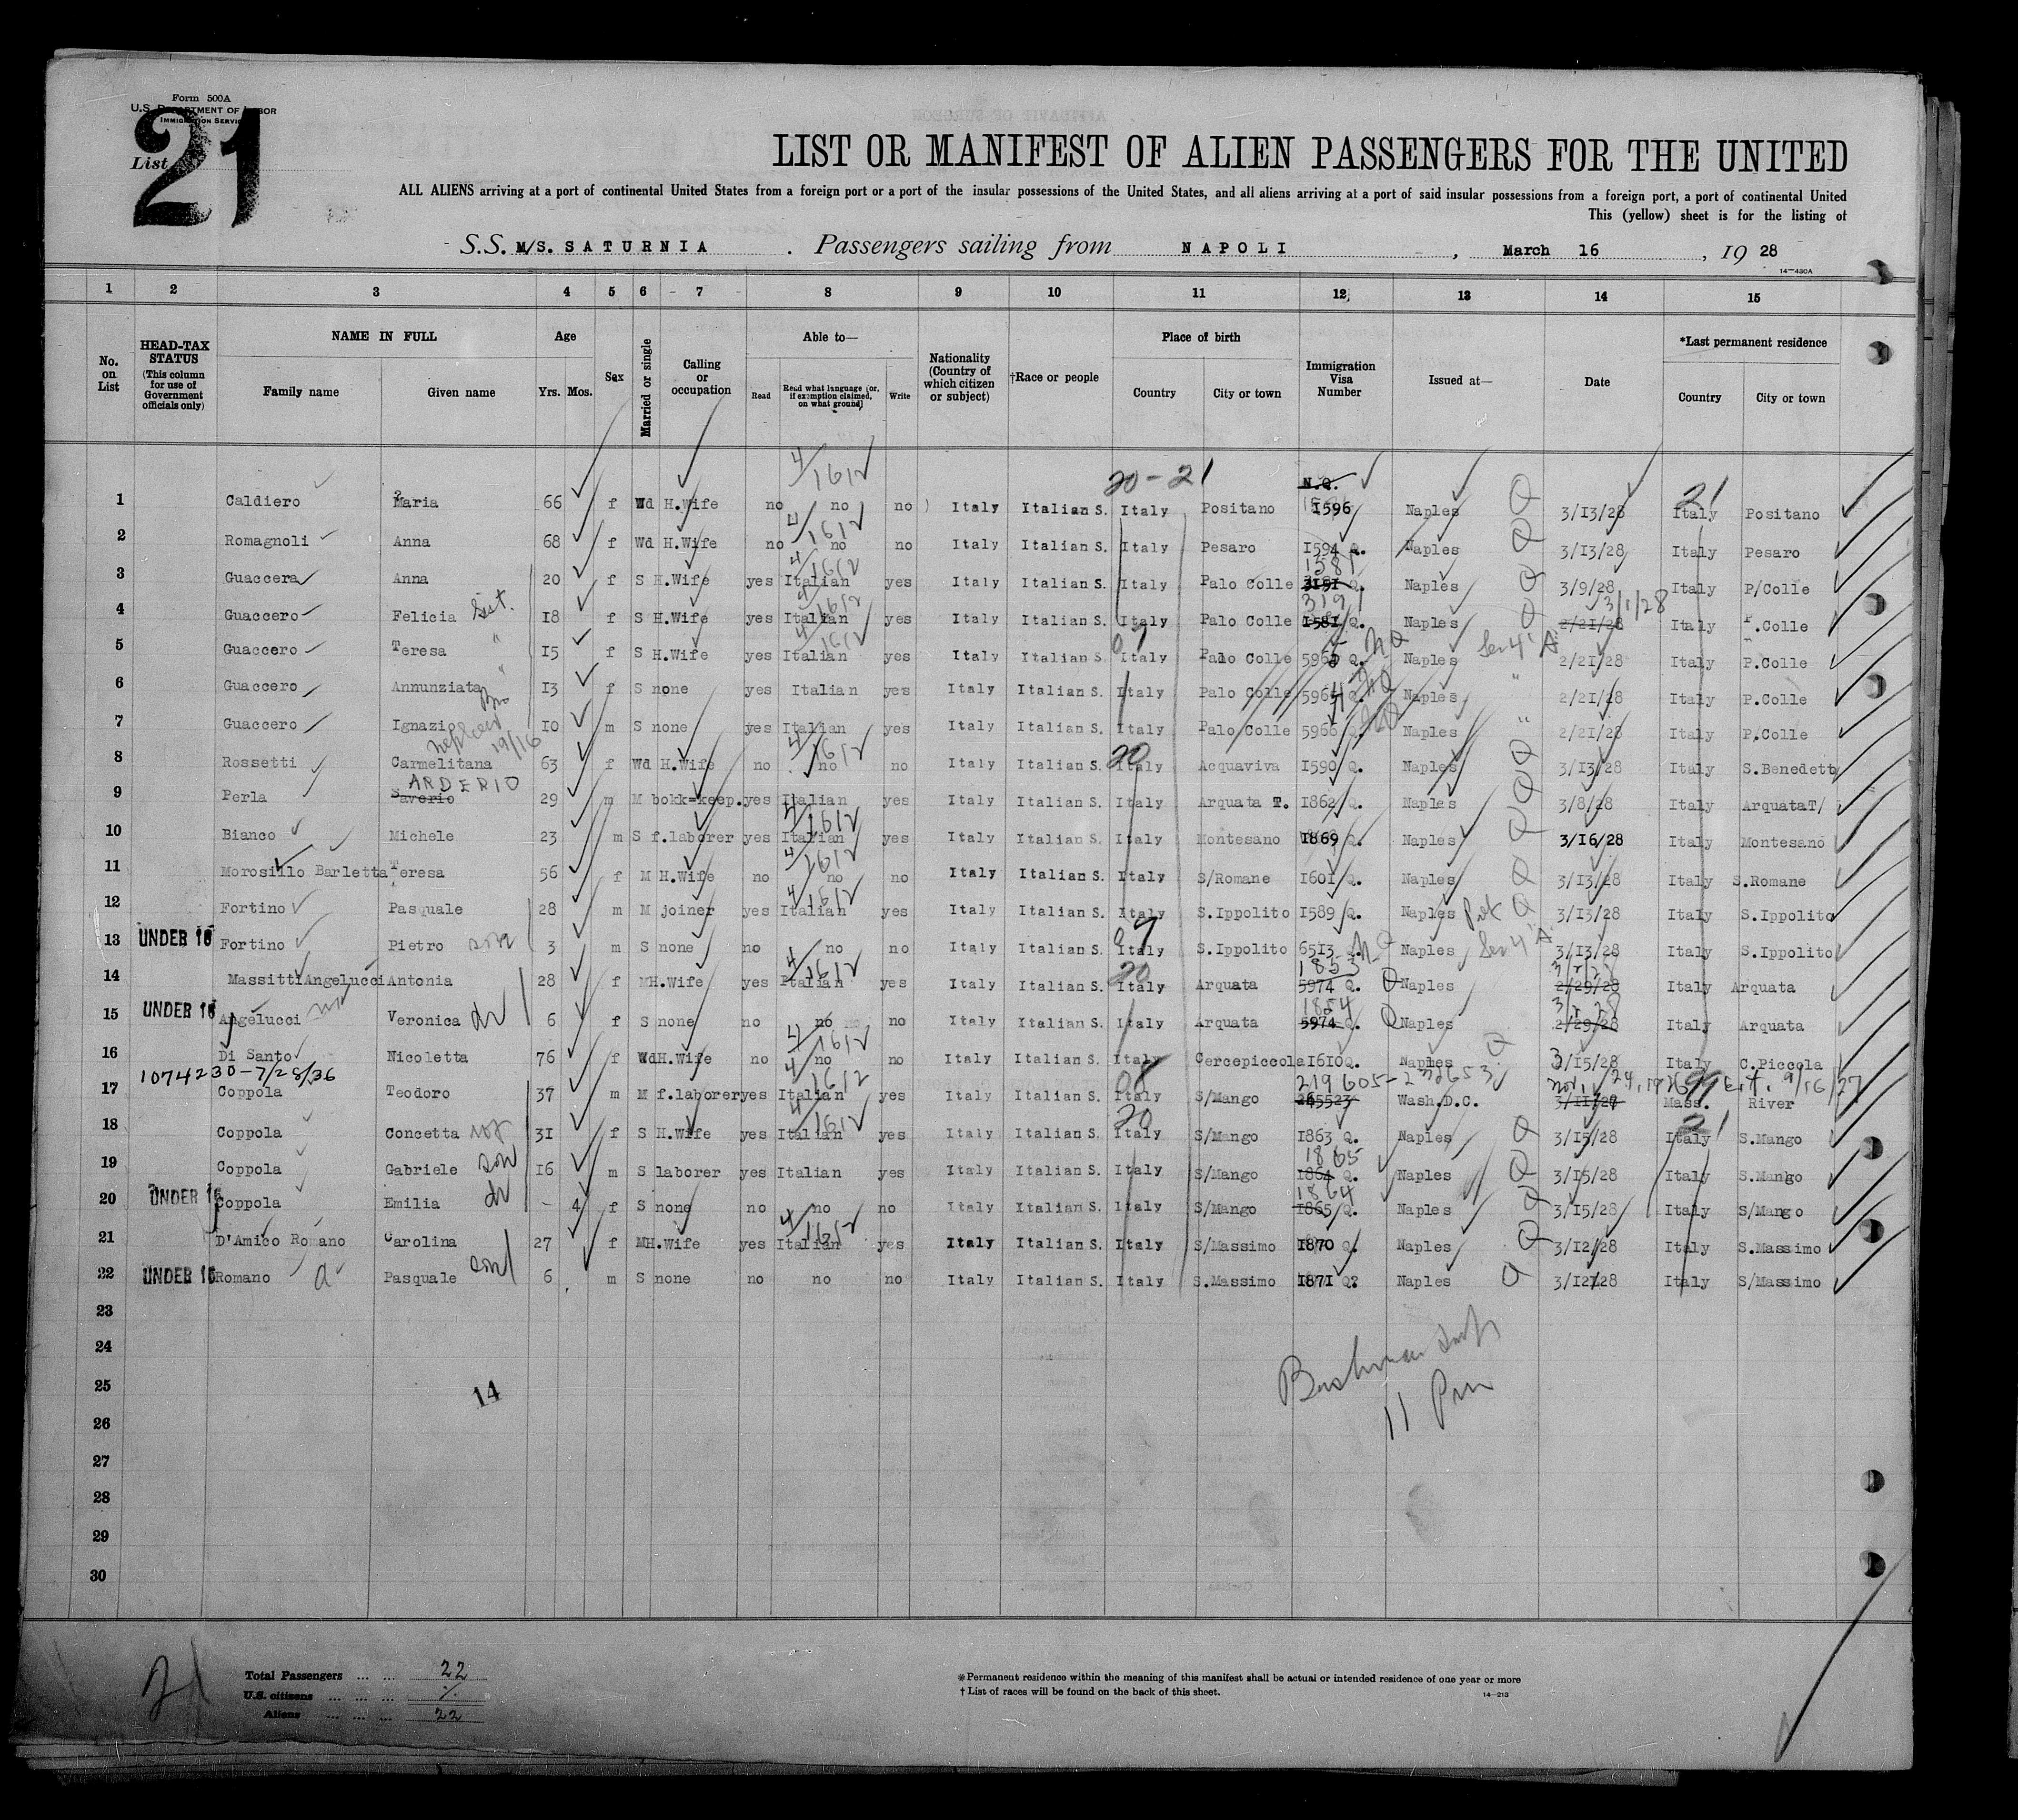 Form 500A
U.S. DEPARTMENT OF LABOR
IMMIGRATION SERVICE
List 21
LIST OR MANIFEST OF ALIEN PASSENGERS FOR THE UNITED
ALL ALIENS arriving at a port of continental United States from a foreign port or a port of the insular possessions of the United States, and all aliens arriving at a port of said insular possessions from a foreign port, a port of continental United
This (yellow) sheet is for the listing of
S.S. M/S. SATURNIA . Passengers sailing from NAPOLI , March 16 , 19 28
14—430A
1 2 3 4 5 6 7 8 9 10 11 12 13 14 15
No. on List
HEAD-TAX STATUS (This column for use of Government officials only)
NAME IN FULL Family name Given name
Age Yrs. Mos.
Sex
Married or single
Calling or occupation
Able to— Read Read what language (or, if exemption claimed, on what ground) Write
Nationality (Country of which citizen or subject)
†Race or people
Place of birth Country City or town
Immigration Visa Number
Issued at—
Date
*Last permanent residence Country City or town
4/1612 20-21 N.Q.
1 Caldiero Maria 66 f Wd H.Wife no no no Italy Italian S. Italy Positano 1596 Naples Q 3/13/28 21 Italy Positano
4/1612
2 Romagnoli Anna 68 f Wd H.Wife no no no Italy Italian S. Italy Pesaro 1594 Q. Naples Q 3/13/28 Italy Pesaro
4/1612 1581
3 Guaccera Anna 20 f S H.Wife yes Italian yes Italy Italian S. Italy Palo Colle 3191 Q. Naples Q 3/9/28 Italy P/Colle
4/1612 3191 3/1/28
4 Guaccero Felicia Sist. 18 f S H.Wife yes Italian yes Italy Italian S. Italy Palo Colle 1581 Q. Naples Q 2/21/28 Italy P.Colle
4/1612 07 NQ Sec 4 "A"
5 Guaccero Teresa " 15 f S H.Wife yes Italian yes Italy Italian S. Italy Palo Colle 596 Q. Naples 2/21/28 Italy P.Colle
6 Guaccero Annunziata " 13 f S none yes Italian yes Italy Italian S. Italy Palo Colle 5965 Q. NQ Naples " 2/21/28 Italy P.Colle
7 Guaccero Ignazio Bro 10 m S none yes Italian yes Italy Italian S. Italy Palo Colle 5966 Q. Naples " 2/21/28 Italy P.Colle
19/16 4/1612 20
8 Rossetti Carmelitana 63 f Wd H.Wife no no no Italy Italian S. Italy Acquaviva 1590 Q. Naples Q 3/13/28 Italy S.Benedett
ARDERIO
9 Perla Saverio 29 m M bokk=keep. yes Italian yes Italy Italian S. Italy Arquata T. 1862 Q. Naples Q 3/8/28 Italy ArquataT/
4/1612
10 Bianco Michele 23 m S f.laborer yes Italian yes Italy Italian S. Italy Montesano 1869 Q. Naples Q 3/16/28 Italy Montesano
4/1612
11 Morosillo Barletta Teresa 56 f M H.Wife no no no Italy Italian S. Italy S/Romane 1601 Q. Naples Q 3/13/28 Italy S.Romane
4/1612
12 Fortino Pasquale 28 m M joiner yes Italian yes Italy Italian S. Italy S.Ippolito 1589 Q. Naples Q 3/13/28 Italy S.Ippolito
13 UNDER 16 Fortino Pietro son 3 m S none no no no Italy Italian S. Italy S.Ippolito 6513 NQ Naples Sec 4 "A" 3/13/28 Italy S.Ippolito
4/1612 20 1853
14 Massitti Angelucci Antonia 28 f M H.Wife yes Italian yes Italy Italian S. Italy Arquata 5974 Q. Q Naples 2/29/28 Italy Arquata
1854
15 UNDER 16 Angelucci Veronica dr 6 f S none no no no Italy Italian S. Italy Arquata 5974 Q. Q Naples 2/29/28 Italy Arquata
4/1612
16 Di Santo Nicoletta 76 f Wd H.Wife no no no Italy Italian S. Italy Cercepiccola 1610 Q. Naples Q 3/15/28 Italy C.Piccola
1074230-7/28/36 4/1612 08 219605- Nov. 24, 1926 99 Ext. 9/16/27
17 Coppola Teodoro 37 m M f.laborer yes Italian yes Italy Italian S. Italy S/Mango 265523 Wash.D.C. Mass. River
4/1612 20 21
18 Coppola Concetta 31 f S H.Wife yes Italian yes Italy Italian S. Italy S/Mango 1863 Q. Naples Q 3/15/28 Italy S.Mango
1865
19 Coppola Gabriele son 16 m S laborer yes Italian yes Italy Italian S. Italy S/Mango 1864 Q. Naples Q 3/15/28 Italy S.Mango
1864
20 UNDER 16 Coppola Emilia dr - 4 f S none no no no Italy Italian S. Italy S/Mango 1865 Q. Naples Q 3/15/28 Italy S/Mango
4/1612
21 D'Amico Romano Carolina 27 f M H.Wife yes Italian yes Italy Italian S. Italy S/Massimo 1870 Q. Naples Q 3/12/28 Italy S.Massimo
22 UNDER 16 Romano Pasquale son 6 m S none no no no Italy Italian S. Italy S.Massimo 1871 Q. Naples Q 3/12/28 Italy S/Massimo
23
24
25 14
26
27
28
29
30
Total Passengers ... ... 22
U.S. citizens ... ... ... %
Aliens ... ... ... 22
*Permanent residence within the meaning of this manifest shall be actual or intended residence of one year or more
†List of races will be found on the back of this sheet.
14—213